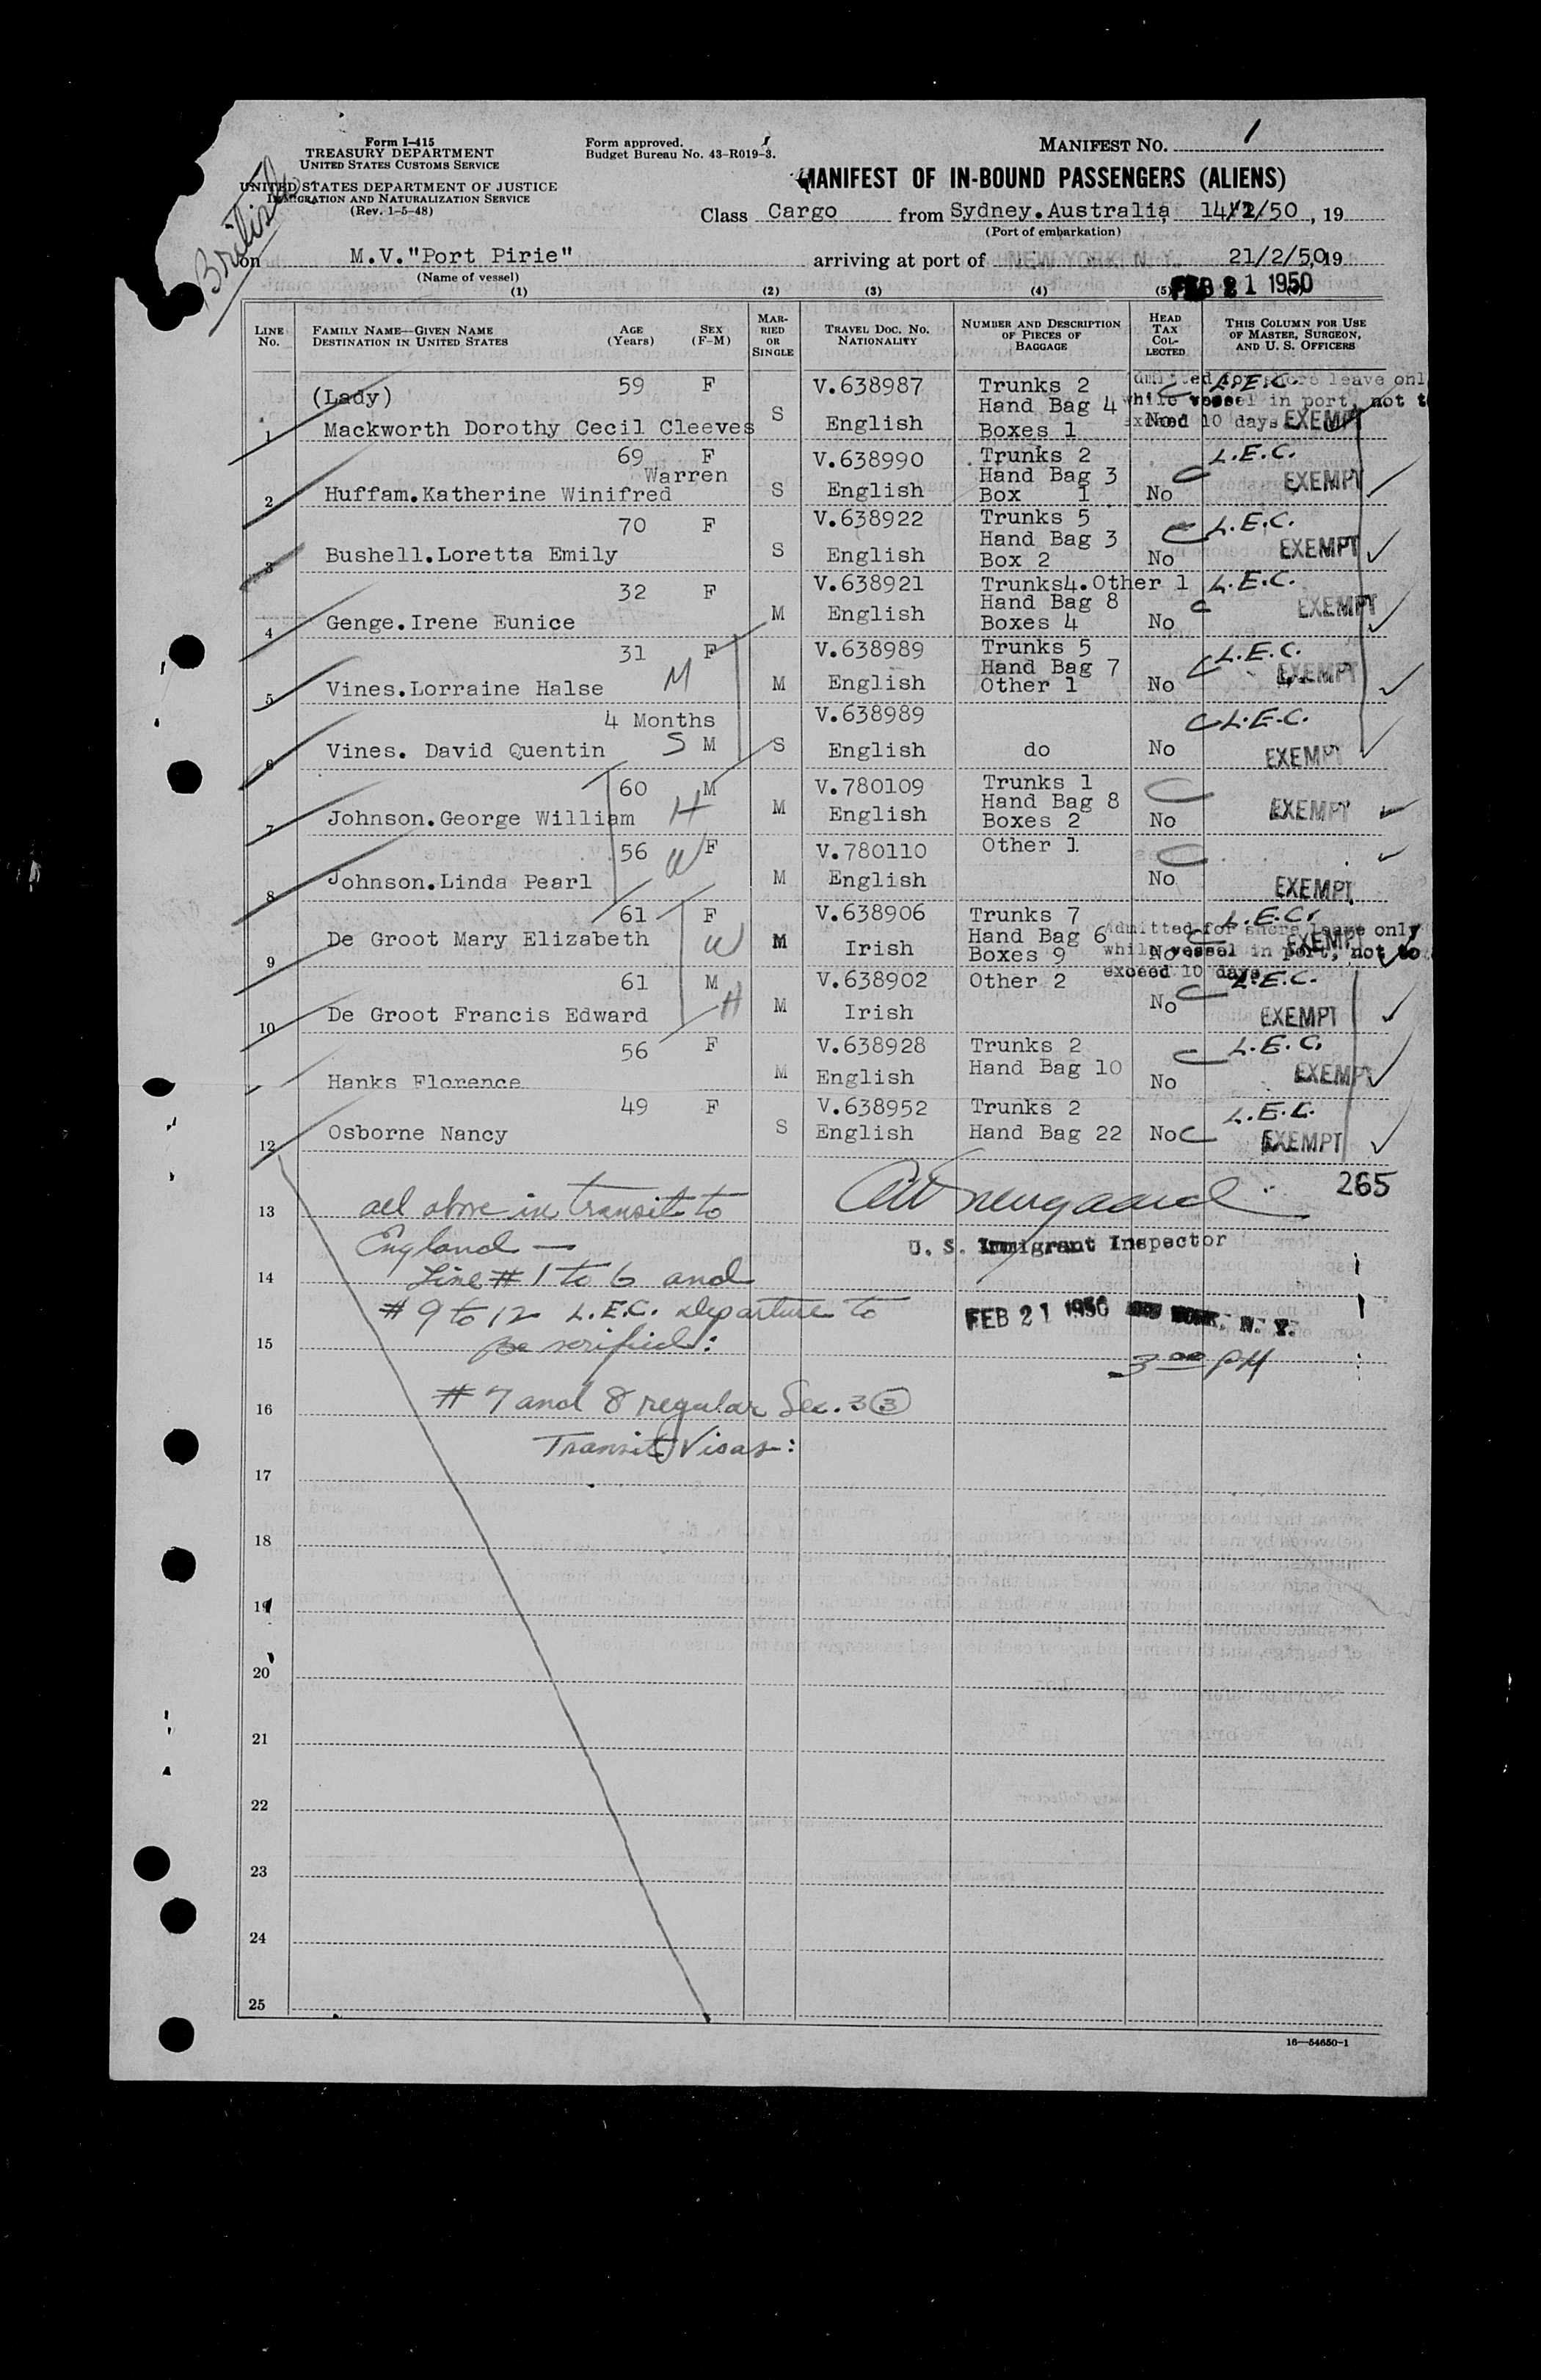 Form I-415
TREASURY DEPARTMENT
UNITED STATES CUSTOMS SERVICE
UNITED STATES DEPARTMENT OF JUSTICE
IMMIGRATION AND NATURALIZATION SERVICE
(Rev. 1-5-48)
British
Form approved.
Budget Bureau No. 43-R019-3.
MANIFEST NO. 1
MANIFEST OF IN-BOUND PASSENGERS (ALIENS)
Class Cargo from Sydney.Australia 14/1/50, 19
(Port of embarkation)
on M.V."Port Pirie" arriving at port of NEW YORK, N. Y. 21/2/50, 19
(Name of vessel)
FEB 21 1950
(1) (2) (3) (4) (5)
LINE No. FAMILY NAME—GIVEN NAME DESTINATION IN UNITED STATES AGE (Years) SEX (F-M) MARRIED OR SINGLE TRAVEL DOC. NO. NATIONALITY NUMBER AND DESCRIPTION OF PIECES OF BAGGAGE HEAD TAX COLLECTED THIS COLUMN FOR USE OF MASTER, SURGEON, AND U. S. OFFICERS
(Lady) 59 F V.638987 Trunks 2 L.E.C.
Admitted for shore leave onl
while vessel in port, not t
exceed 10 days
Hand Bag 4
1 Mackworth Dorothy Cecil Cleeves S English Boxes 1 No EXEMPT
69 F V.638990 Trunks 2 L.E.C.
Warren Hand Bag 3
2 Huffam.Katherine Winifred S English Box 1 No EXEMPT
70 F V.638922 Trunks 5 L.E.C.
Hand Bag 3
3 Bushell.Loretta Emily S English Box 2 No EXEMPT
32 F V.638921 Trunks4.Other 1 L.E.C.
Hand Bag 8
4 Genge.Irene Eunice M English Boxes 4 No EXEMPT
31 F V.638989 Trunks 5 L.E.C.
Hand Bag 7
5 Vines.Lorraine Halse M M English Other 1 No EXEMPT
4 Months V.638989 L.E.C.
6 Vines. David Quentin S M S English do No EXEMPT
60 M V.780109 Trunks 1
Hand Bag 8
7 Johnson.George William H M English Boxes 2 No EXEMPT
56 F V.780110 Other 1
8 Johnson.Linda Pearl W M English No EXEMPT
61 F V.638906 Trunks 7 L.E.C.
Hand Bag 6
Admitted for shore leave only
while vessel in port, not to
exceed 10 days
9 De Groot Mary Elizabeth W M Irish Boxes 9 No EXEMPT
61 M V.638902 Other 2 L.E.C.
10 De Groot Francis Edward H M Irish No EXEMPT
56 F V.638928 Trunks 2 L.E.C.
Hanks Florence M English Hand Bag 10 No EXEMPT
49 F V.638952 Trunks 2 L.E.C.
12 Osborne Nancy S English Hand Bag 22 No EXEMPT
265
13 all above in transit to
England —
U. S. Immigrant Inspector
14 Line # 1 to 6 and
# 9 to 12 L.E.C. departure to
FEB 21 1950 NEW YORK, N. Y.
15 be verified:
3 00 PM
16 # 7 and 8 regular Sec. 3 (3)
Transit Visas:
17
18
19
20
21
22
23
24
25
16—54650-1